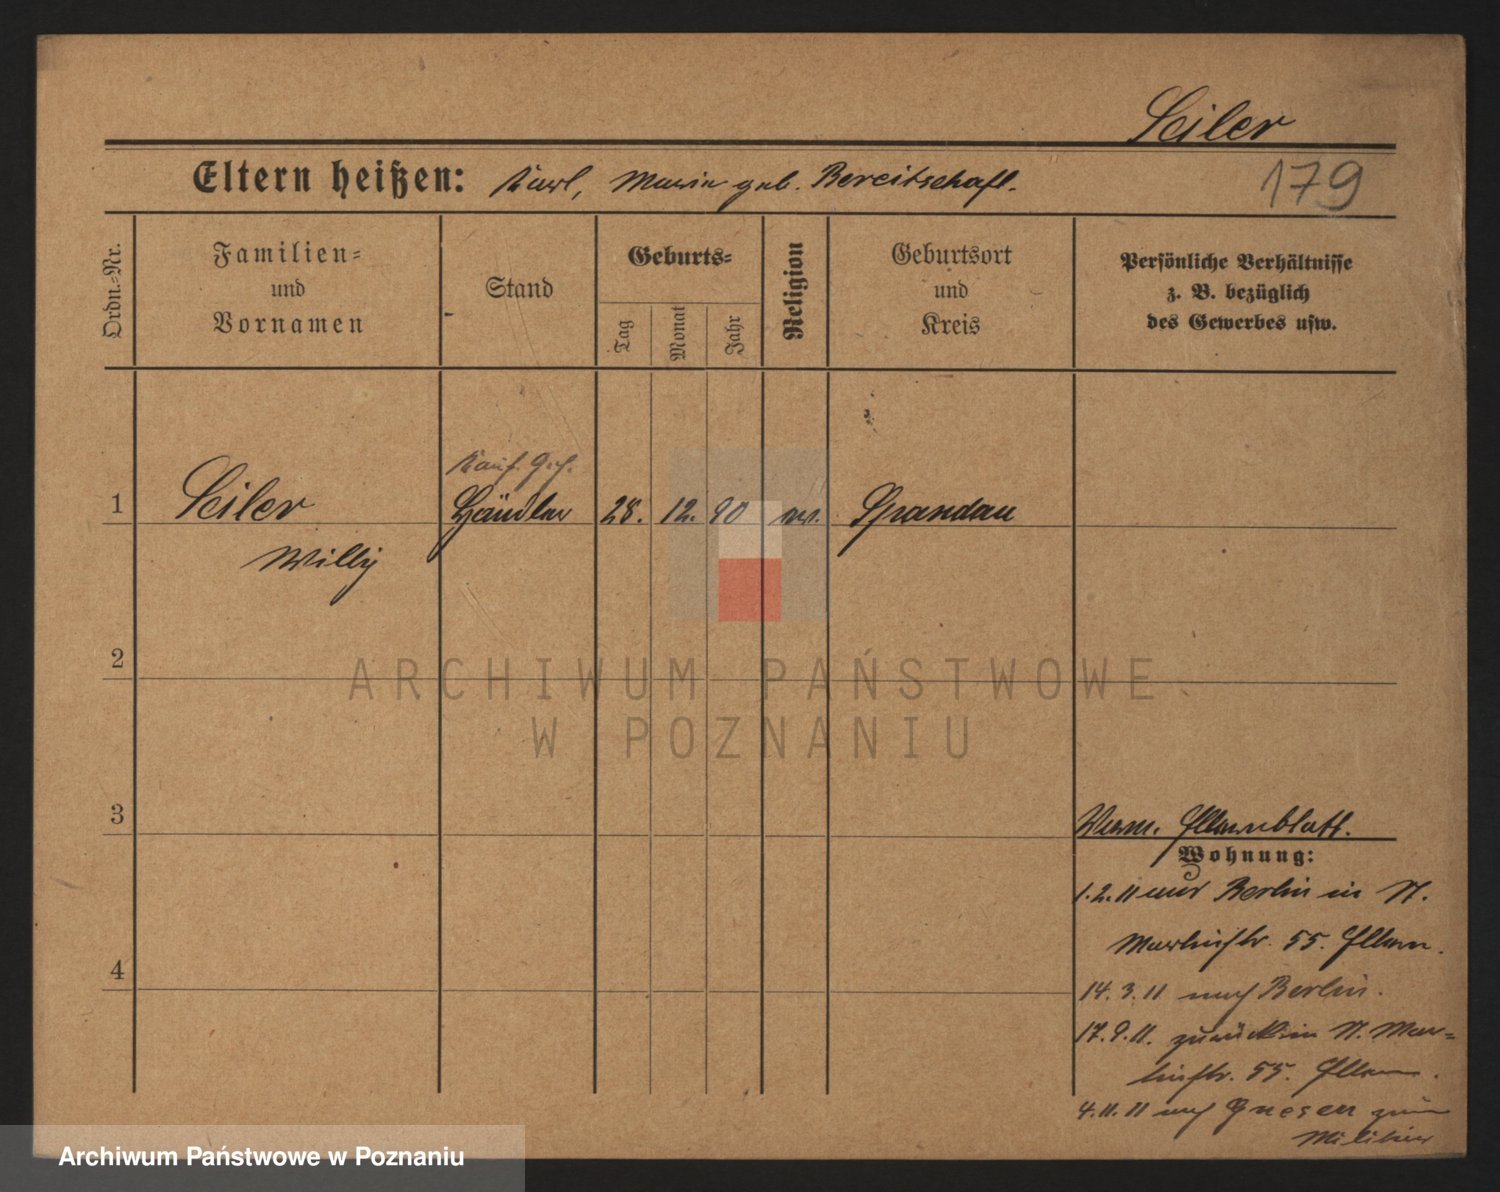 Seiler
Eltern heißen: Karl, Marie geb. Bereitschaft.
179
Ordn.-Nr.
Familien-
und
Vornamen
Stand
Geburts-
Tag
Monat
Jahr
Religion
Geburtsort
und
Kreis
Persönliche Verhältnisse
z. B. bezüglich
des Gewerbes usw.
Kauf. Geh.
1 Seiler Händler 28. 12. 90 ev. Spandau
Willy
2
ARCHIWUM PAŃSTWOWE
W POZNANIU
3
Elternblatt.
Wohnung:
1.2.11 aus Berlin in N.
Martinstr. 55. Eltern.
4
14.3.11 nach Berlin.
17.9.11. zurück in N. Mar-
tinstr. 55. Eltern.
4.11.11 nach Gnesen zum
Militär
Archiwum Państwowe w Poznaniu